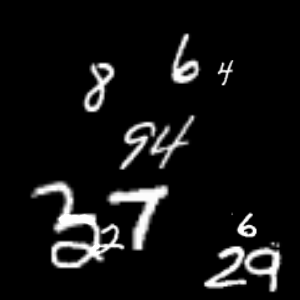 8 6 4
94
3 2 7
6
29